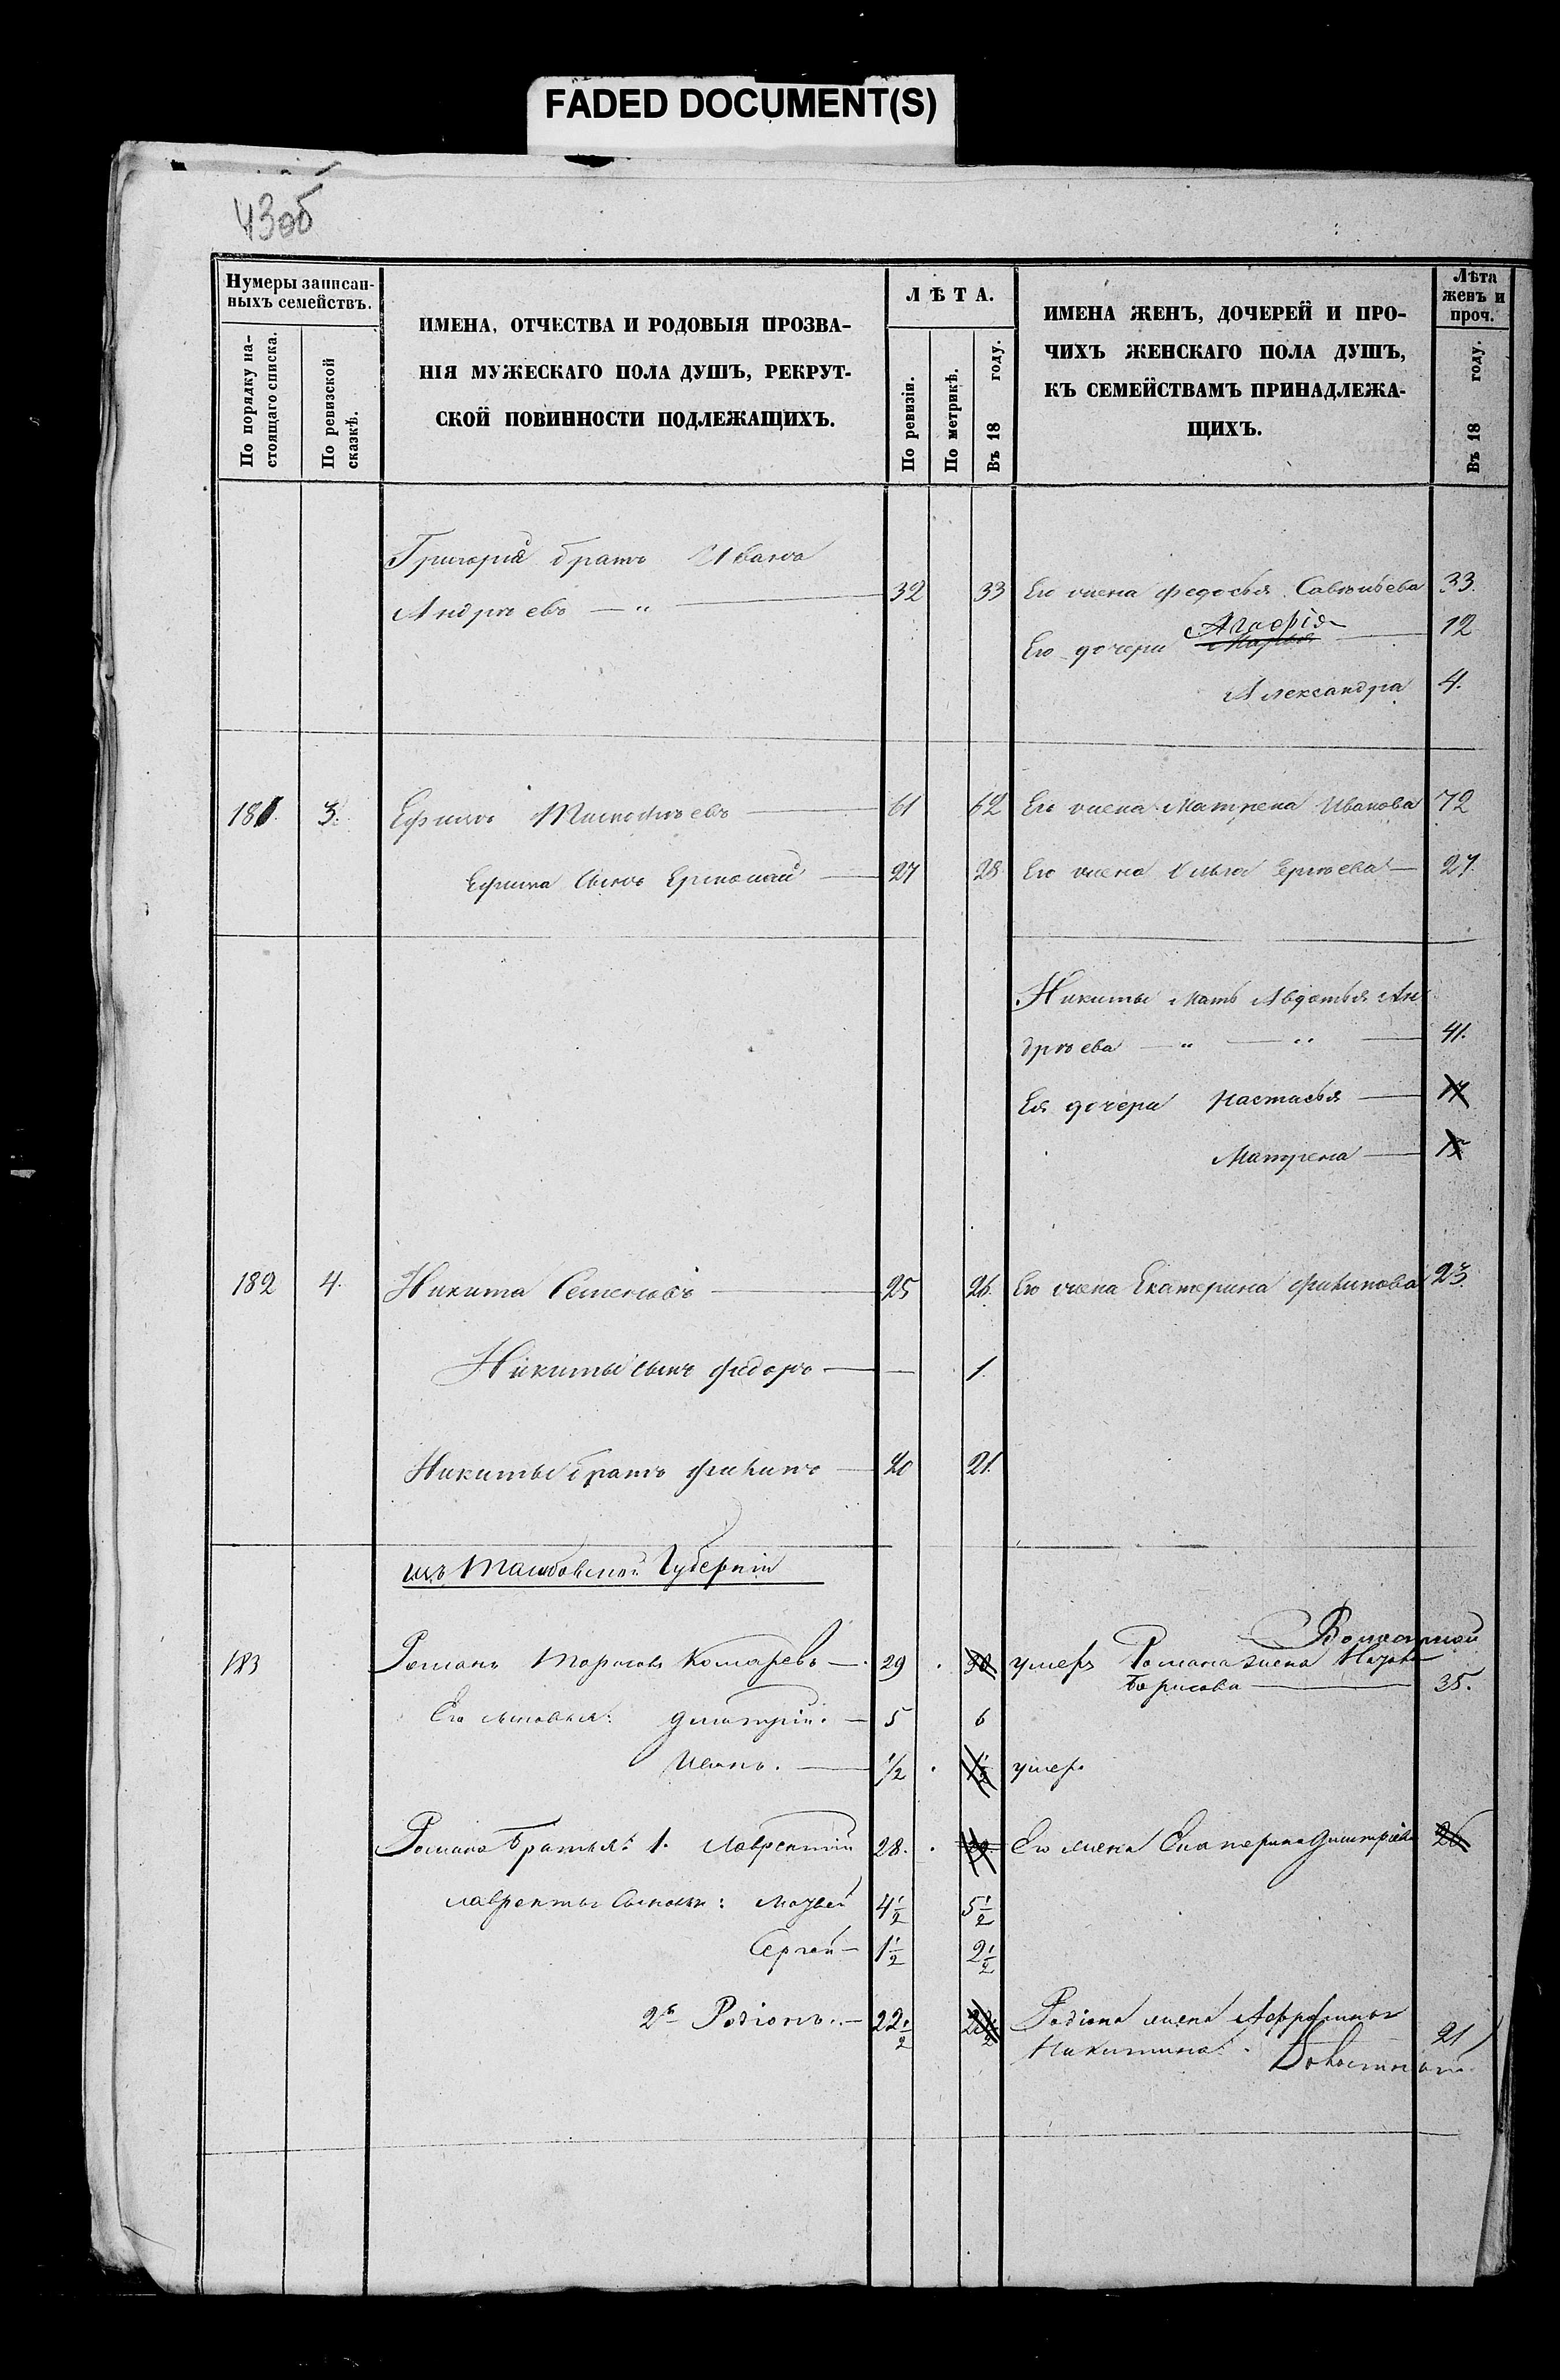 FADED DOCUMENT(S)
43об
Нумеры записан-
ныхъ семействъ.
По порядку на-
стоящаго списка.
По ревизской
сказкѣ.
ИМЕНА, ОТЧЕСТВА И РОДОВЫЯ ПРОЗВА-
НІЯ МУЖЕСКАГО ПОЛА ДУШЪ, РЕКРУТ-
СКОЙ ПОВИННОСТИ ПОДЛЕЖАЩИХЪ.
ЛѢТА.
По ревизіи.
По метрикѣ.
Въ 18 году.
ИМЕНА ЖЕНЪ, ДОЧЕРЕЙ И ПРО-
ЧИХЪ ЖЕНСКАГО ПОЛА ДУШЪ,
КЪ СЕМЕЙСТВАМЪ ПРИНАДЛЕЖА-
ЩИХЪ.
Лѣта
женъ и
проч.
Въ 18 году.
Григорія братъ Иванъ
Андрѣевъ — " — 32 33 Его жена Федосья Савельева 33.
Агафія
Его дочери Марья — 12
Александра 4.
181. 3. Ефимъ Тимофѣевъ — 61 62 Его жена Матрена Иванова 72
Ефима сынъ Ермолай — 27 28 Его жена Ульяна Сергѣева — 27.
Никиты мать Авдотья Ан
дрѣева — " — " — 41.
Ея дочери Настасья — 17
Матрена — 15
182 4. Никита Семеновъ — 25 26. Его жена Екатерина Филипова 23.
Никиты сынъ Федоръ — — 1.
Никиты братъ Филипъ — 20 21.
изъ Тамбовской Губерніи
183 Романъ Тарасовъ Комаревъ — 29 30 умеръ Романа жена
Борисова — 35.
Его сыновья: Дмитрій. — 5 6
Иванъ. — 1/2 1 1/2 умер.
Романа братья: 1. Лаврентій 28. 29. Его жена Екатерина Дмитріева 26
Лаврентья сыновья: Матвей 4 1/2 5 1/2
Сергей — 1 1/2 2 1/2
2й Родіонъ. — 22 1/2 23 1/2 Родіона жена
Никитина. 21